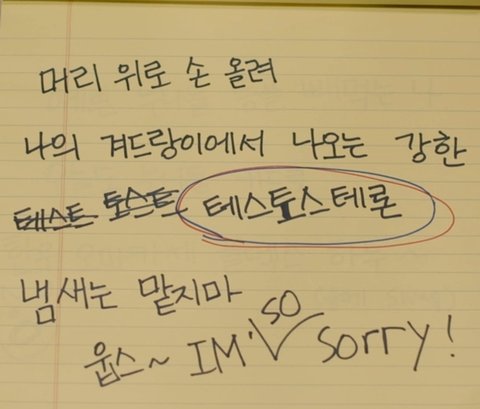 머리 위로 손 올려
나의 겨드랑이에서 나오는 강한
테스트 토스트 테스토스테론
냄새는 맡지마
웁스~ IM' so sorry!